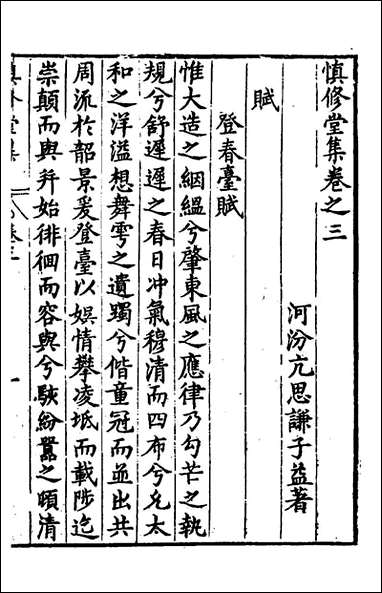 慎修堂集卷之三
河汾亢思謙子益著
賦
登春臺賦
惟大造之絪縕兮肇東風之應律乃勾芒之執
規兮舒遲遲之春日冲氣穆清而四布兮允太
和之洋溢想舞雩之遺躅兮偕童冠而並出共
周流於韶景爰登臺以娛情攀凌坻而載陟迄
崇顛而與并始徘徊而容與兮駃紛囂之頤清
慎修堂集 卷三 一